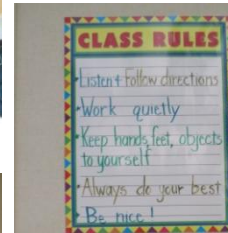 CLASS RULES
• Listen & Follow directions
• Work quietly
• Keep hands, feet, objects
to yourself
• Always do your best
• Be nice!